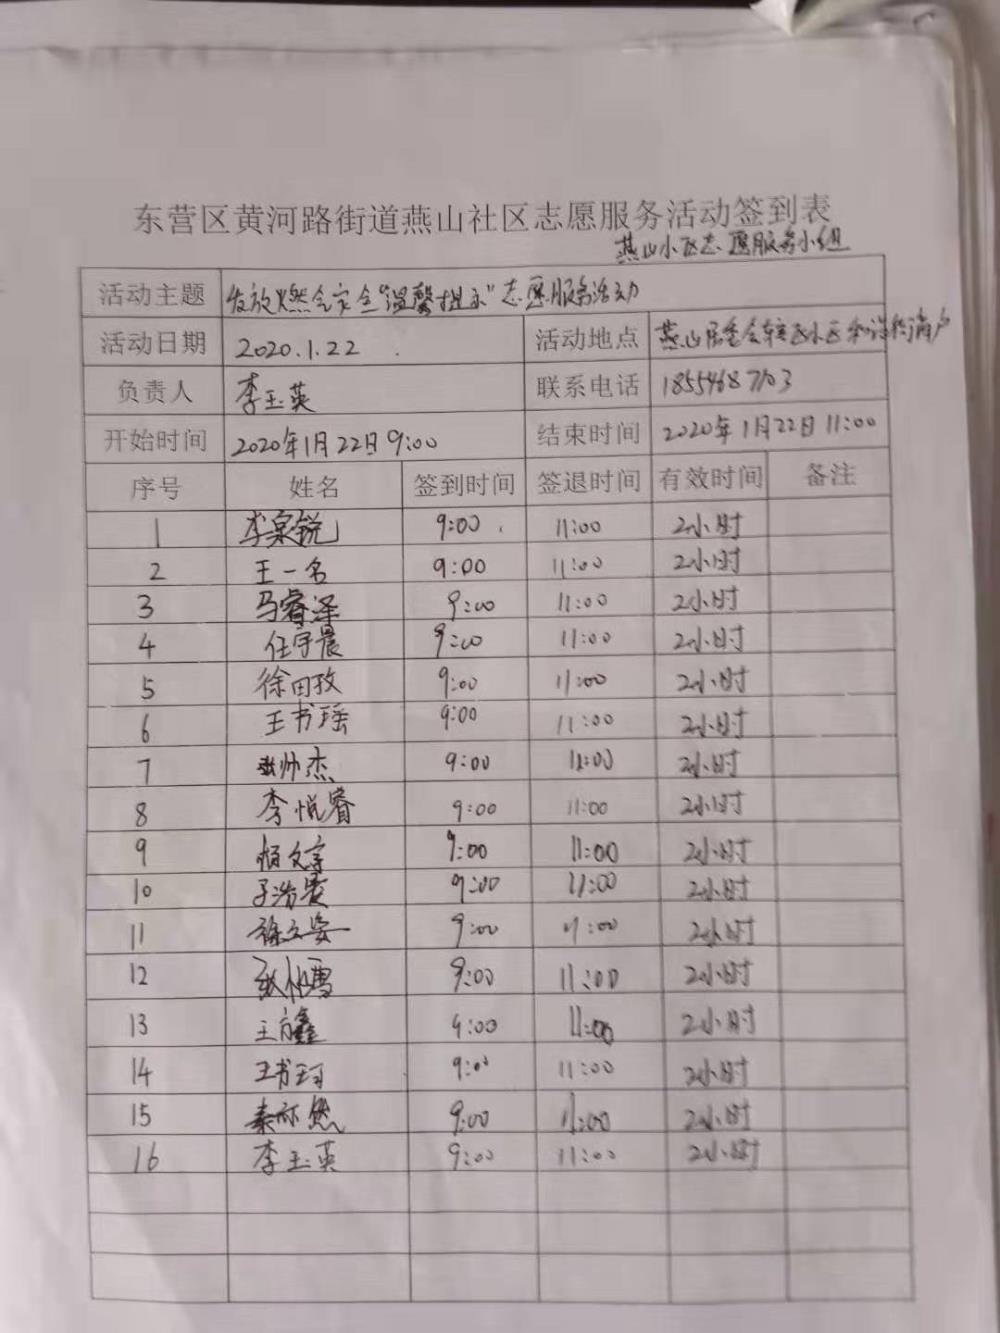 东营区黄河路街道燕山社区志愿服务活动签到表
燕山小区志愿服务小组
活动主题 发放燃气安全"温馨提示"志愿服务活动
活动日期 2020.1.22 活动地点 燕山居委会辖区小区和沿街商户
负责人 李玉英 联系电话 18554687103
开始时间 2020年1月22日9:00 结束时间 2020年1月22日11:00
序号 姓名 签到时间 签退时间 有效时间 备注
1 李泉锐 9:00 11:00 2小时
2 王一名 9:00 11:00 2小时
3 马睿泽 9:00 11:00 2小时
4 任宇晨 9:00 11:00 2小时
5 徐田孜 9:00 11:00 2小时
6 王书瑶 9:00 11:00 2小时
7 帅杰 9:00 11:00 2小时
8 李悦睿 9:00 11:00 2小时
9 文宇 9:00 11:00 2小时
10 9:00 11:00 2小时
11 徐文姿 9:00 11:00 2小时
12 9:00 11:00 2小时
13 王方鑫 9:00 11:00 2小时
14 王书珂 9:00 11:00 2小时
15 秦亦然 9:00 11:00 2小时
16 李玉英 9:00 11:00 2小时